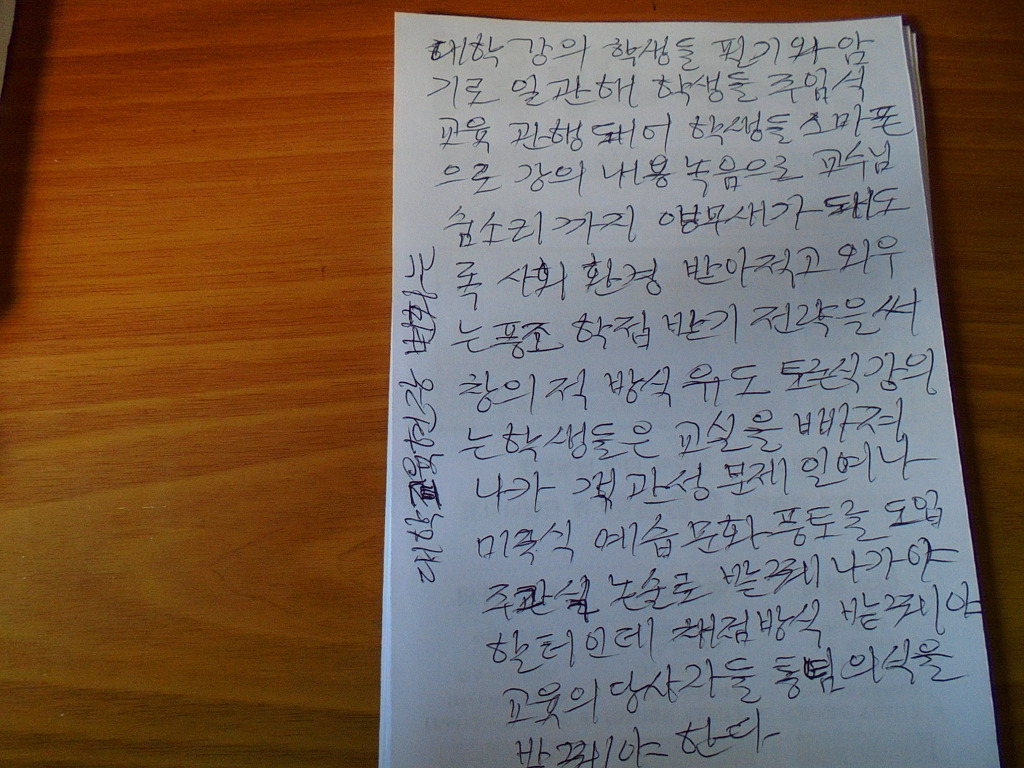 대학 강의 학생들 필기와 암
기로 일관해 학생들 주입식
교육 관행 돼어 학생들 스마폰
으로 강의 내용 녹음으로 교수님
숨소리 까지 앵무새가 돼도
록 사회 환경 받아적고 외우
는풍조 학점 받기 전략을써
창의적 방식 유도 토론식강의
는학생들은 교실을 빠져
나가 객관성 문제 일여나
미국식 예습문화풍토를 도입
주관식 논술로 바뀌나가야
할터인데 채점방식 바뀌야
교육의 당사자들 통념의식을
바뀌야 한다
대학교육현장 변화는